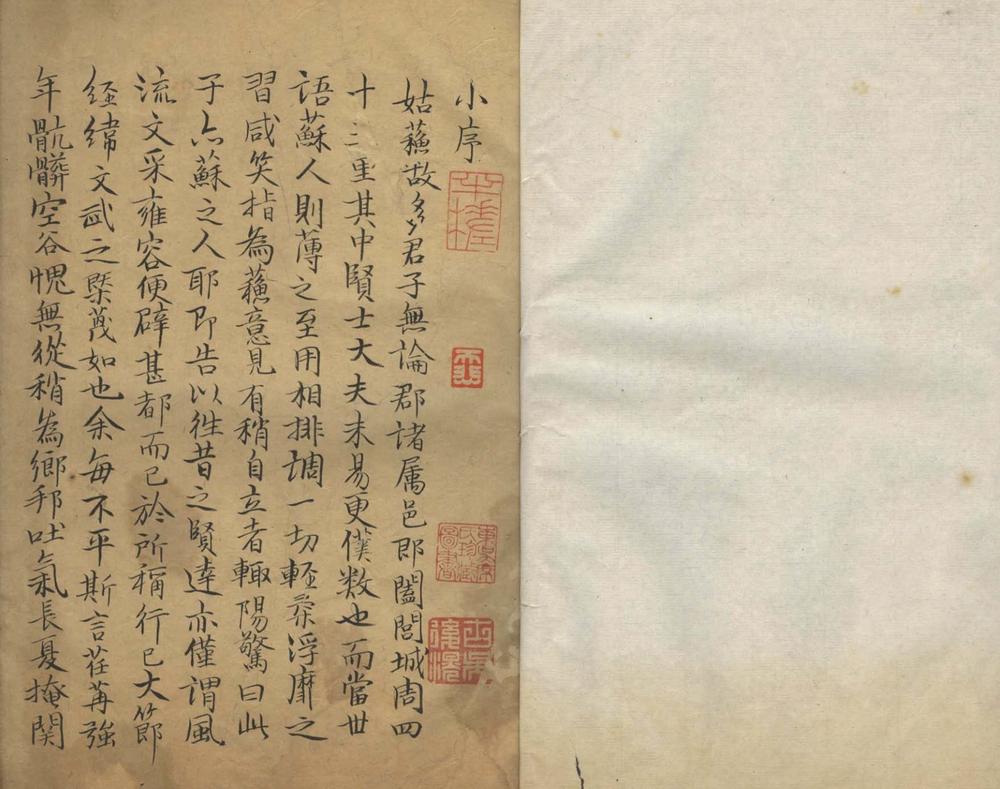 小序
姑蘓故多君子無論郡諸属邑即闔閭城周四
十里其中賢士大夫未易更僕数也而當世
語蘇人則薄之至用相排調一切輕柔浮靡之
習咸笑指為蘓意見有稍自立者輙陽驚曰此
子亦蘇之人耶即告以徃昔之賢達亦僅謂風
流文采雍容便辟甚都而已於所稱行己大節
經緯文武之槩蔑如也余每不平斯言荏苒強
年骯髒空谷愧無從稍為鄉邦吐氣長夏掩関